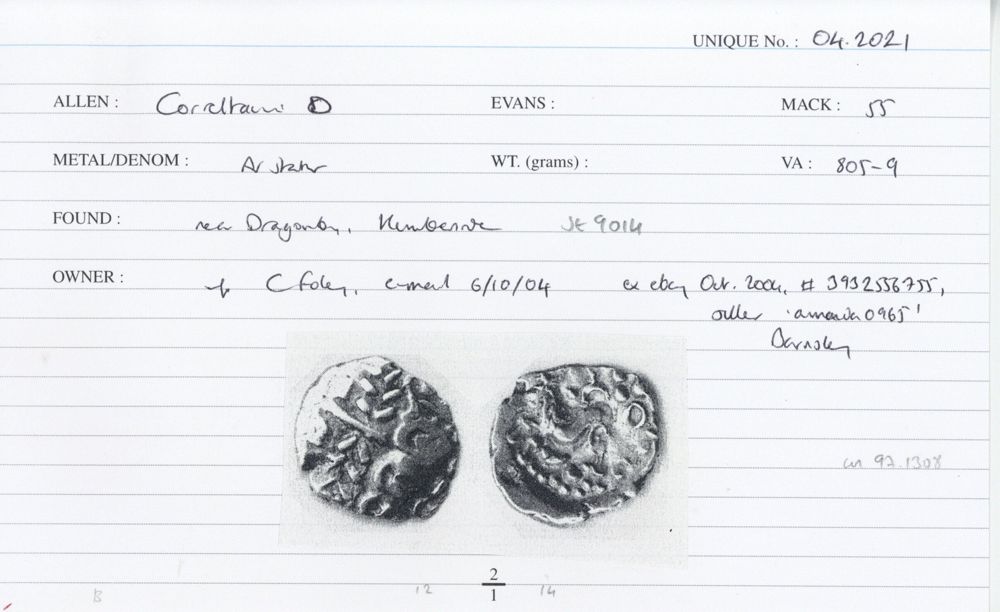 UNIQUE No. : 04.2021
ALLEN : Corieltauvi D EVANS : MACK : 55
METAL/DENOM : AV stater WT. (grams) : VA : 805-9
FOUND : near Dragonby, Humberside SE 9014
OWNER : C Foley, e-mail 6/10/04 ex ebay Oct. 2004, # 3932556755,
seller 'amanda0965'
Barnsley
cn 97.1308
2
B 12 14
1